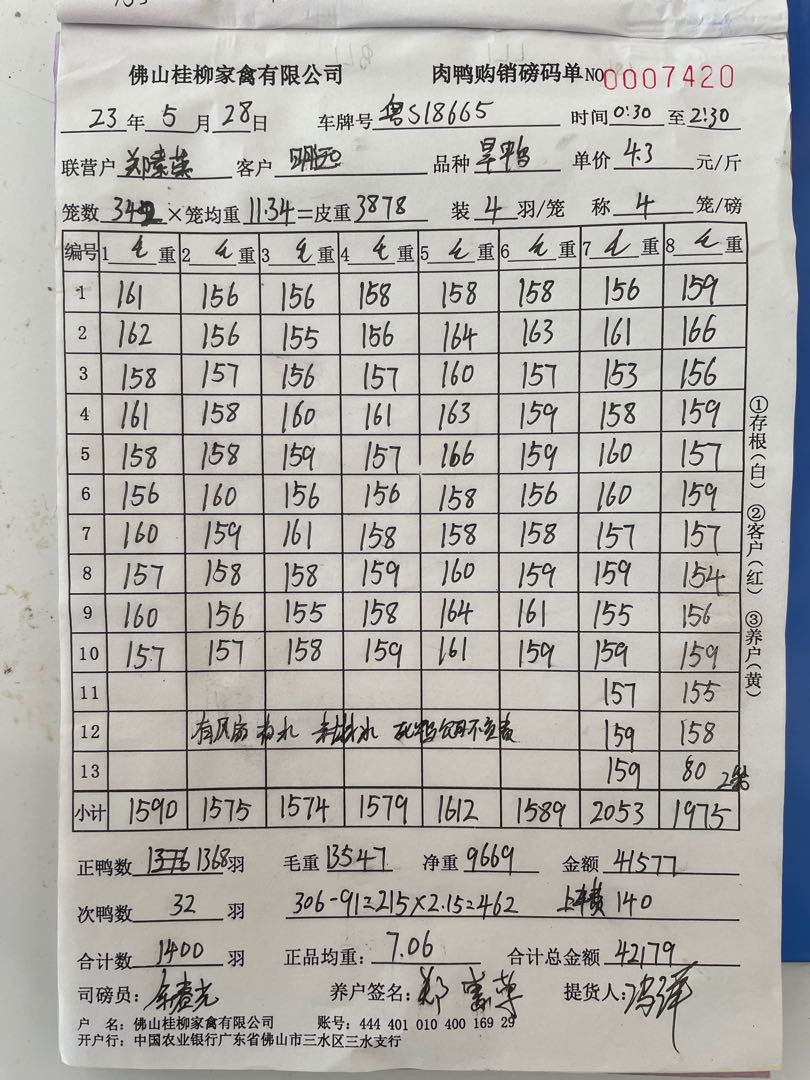 佛山桂柳家禽有限公司 肉鸭购销磅码单 NO 0007420
23 年 5 月 28 日 车牌号 粤S18665 时间 0:30 至 2:30
联营户 客户 明记 品种 旱鸭 单价 4.3 元/斤
笼数 342 ×笼均重 11.34 =皮重 3878 装 4 羽/笼 称 4 笼/磅
编号 1 毛 重 2 毛 重 3 毛 重 4 毛 重 5 毛 重 6 毛 重 7 毛 重 8 毛 重
1 161 156 156 158 158 158 156 159
2 162 156 155 156 164 163 161 166
3 158 157 156 157 160 157 153 156
4 161 158 160 161 163 159 158 159
5 158 158 159 157 166 159 160 157
6 156 160 156 156 158 156 160 159
7 160 159 161 158 158 158 157 157
8 157 158 158 159 160 159 159 154
9 160 156 155 158 164 161 155 156
10 157 157 158 159 161 159 159 159
11 157 155
12 有风 159 158
13 159 80
小计 1590 1575 1574 1579 1612 1589 2053 1975
①存根(白) ②客户(红) ③养户(黄)
正鸭数 1368 羽 毛重 13547 净重 9669 金额 41577
次鸭数 32 羽 306-91=215×2.15=462 上车费 140
合计数 1400 羽 正品均重: 7.06 合计总金额 42179
司磅员: 养户签名: 提货人:
户 名: 佛山桂柳家禽有限公司 账号: 444 401 010 400 169 29
开户行: 中国农业银行广东省佛山市三水区三水支行